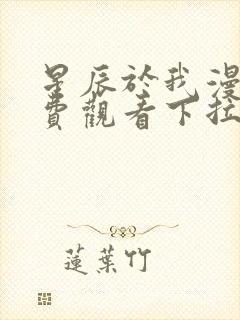 星辰於我漫
費觀看下拉
蓮葉竹